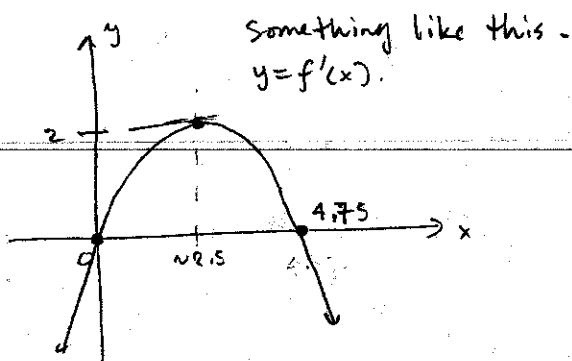 y
something like this.
y=f'(x).
2
4.75
x
0
~2.5